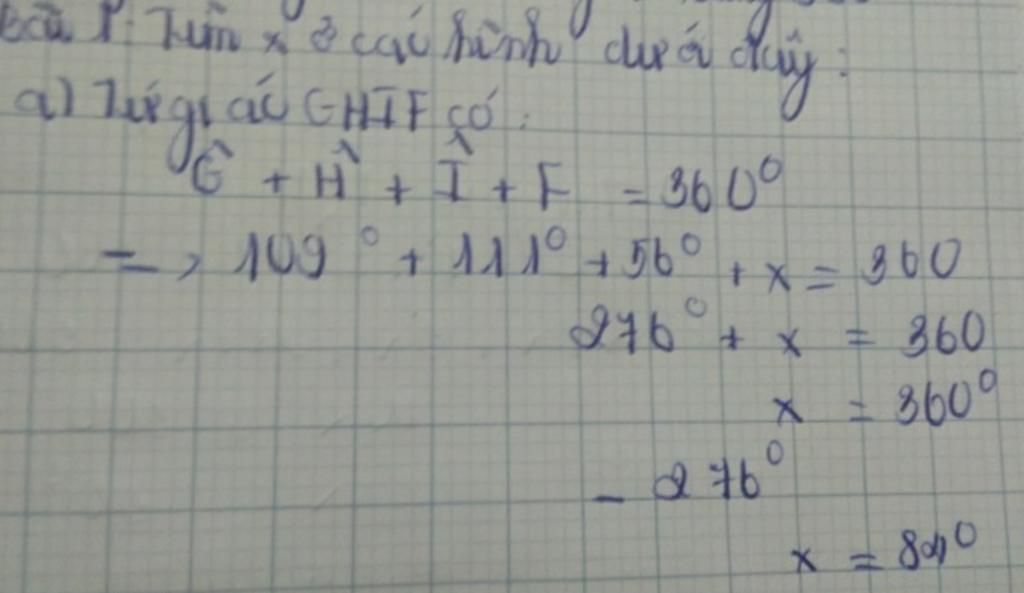 Bài 1: Tìm x ở các hình dưới đây:
a) Tứ giác GHIF có:
Ĝ + Ĥ + Î + F = 360⁰
=> 109⁰ + 111⁰ + 56⁰ + x = 360
276⁰ + x = 360
x = 360⁰
- 276⁰
x = 84⁰